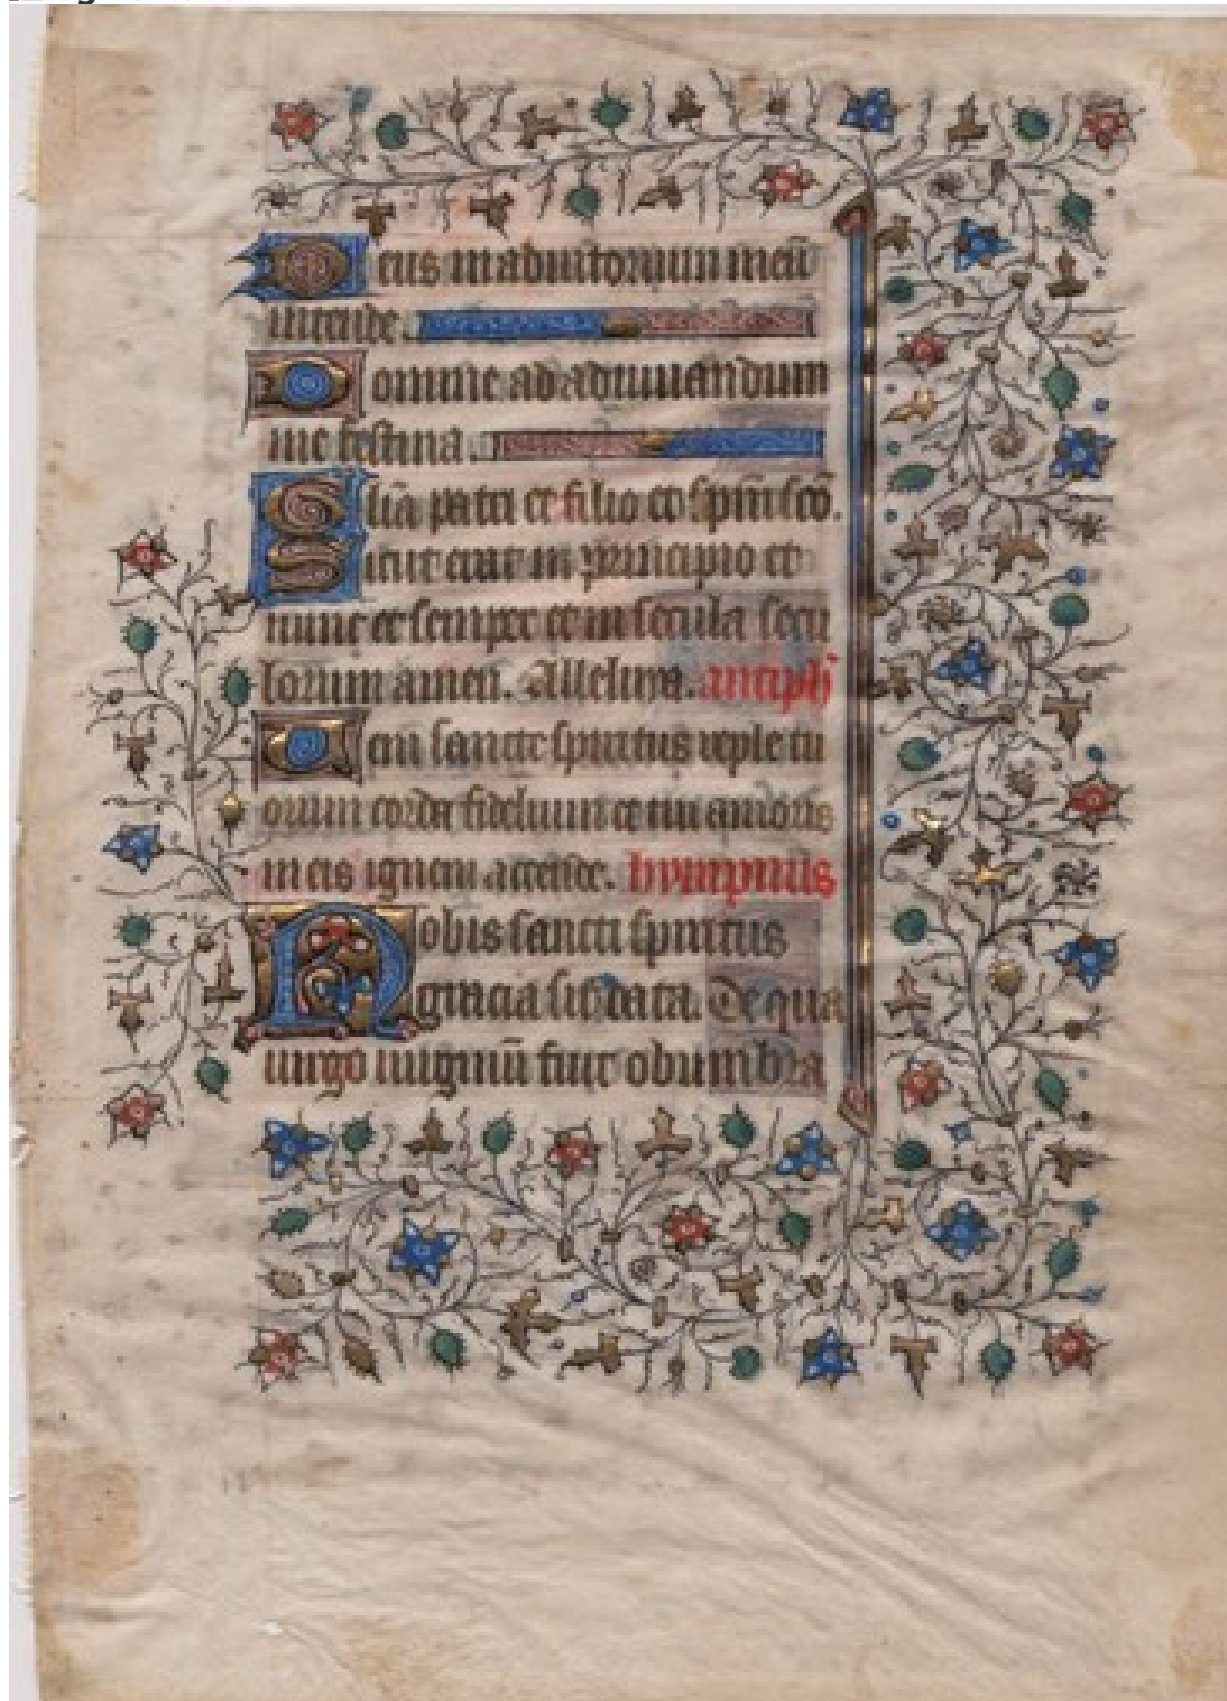 Deus in adiutorium meū
intende.
Domine ad adiuuandum
me festina.
Glīa patri et filio et spīri scō.
Sicut erat in principio et
nunc et semper et in secula secu
lorum amen. Alleluya. antiph̄
Ueni sancte spiritus reple tu
orum corda fidelium et tui amoris
in eis ignem accende. hympnus
Nobis sancti spiritus
gracia sit data. De qua
uirgo uirginū fuit obumbra